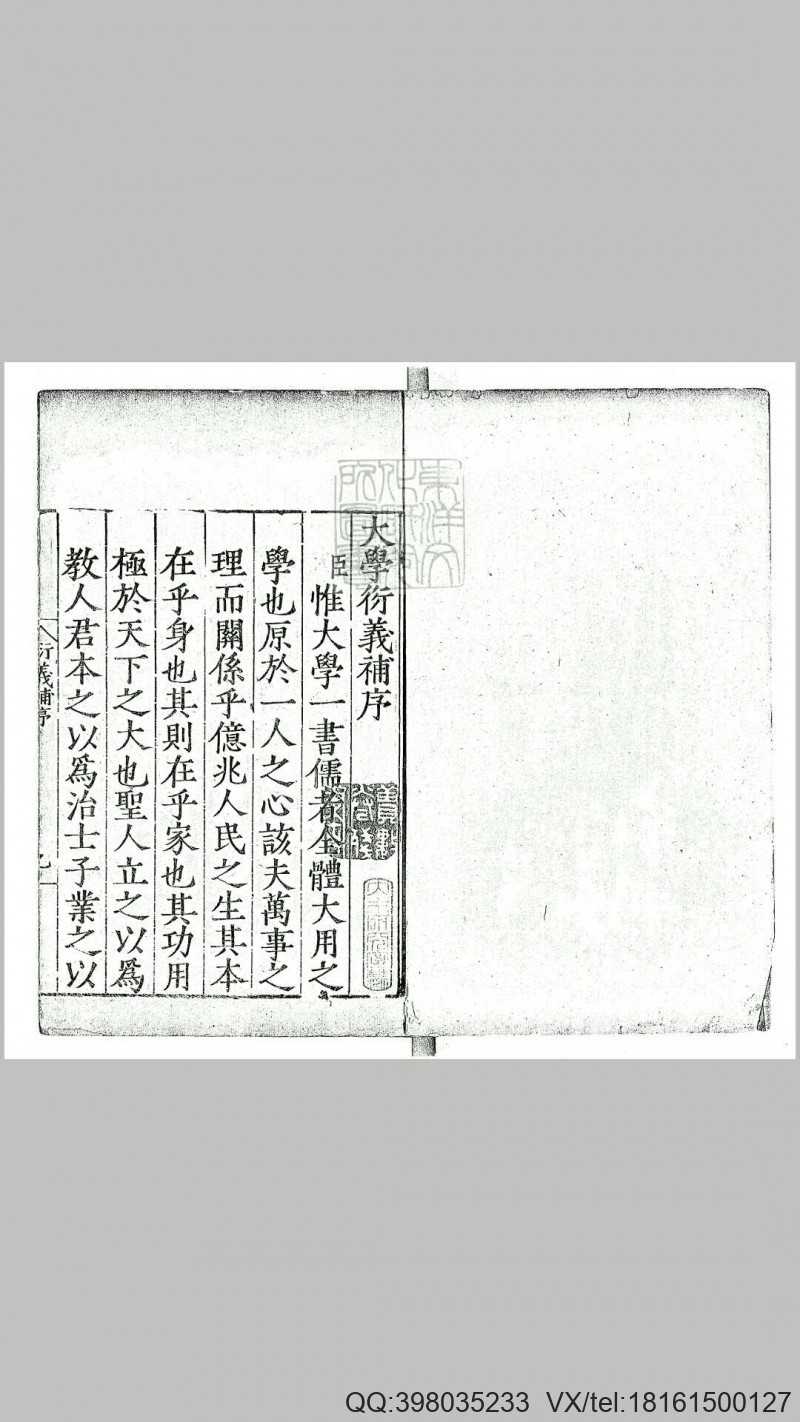 大學衍義補序
臣惟大學一書儒者全體大用之
學也原於一人之心該夫萬事之
理而關係乎億兆人民之生其本
在乎身也其則在乎家也其功用
極於天下之大也聖人立之以爲
教人君本之以爲治士子業之以
衍義補序
QQ:398035233 VX/tel:18161500127